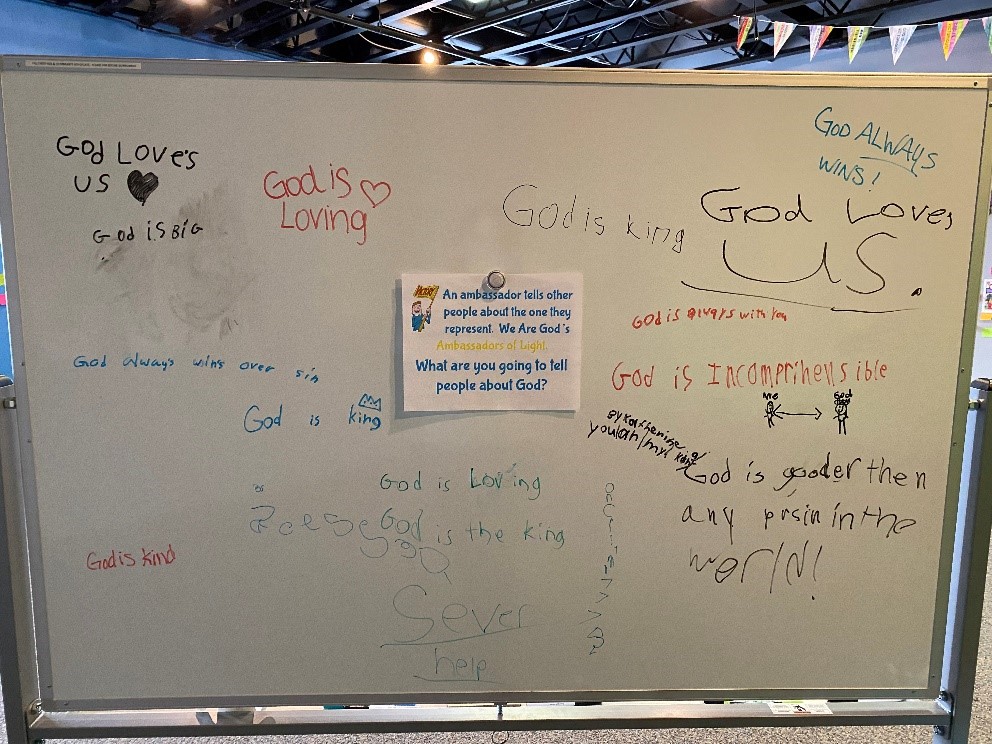 GOD ALWAYS
WINS!
God Love's
US
God is BiG
God is
Loving
God is king
God Loves
US.
An ambassador tells other
people about the one they
represent. We Are God's
Ambassadors of Light.
What are you going to tell
people about God?
GOD is always with You
God always wins over sin
God is king
God is Incomprihensible
me
God
God is Loving
God is the king
God is gooder then
any prsin in the
worlN!
God is kind
Sever
help